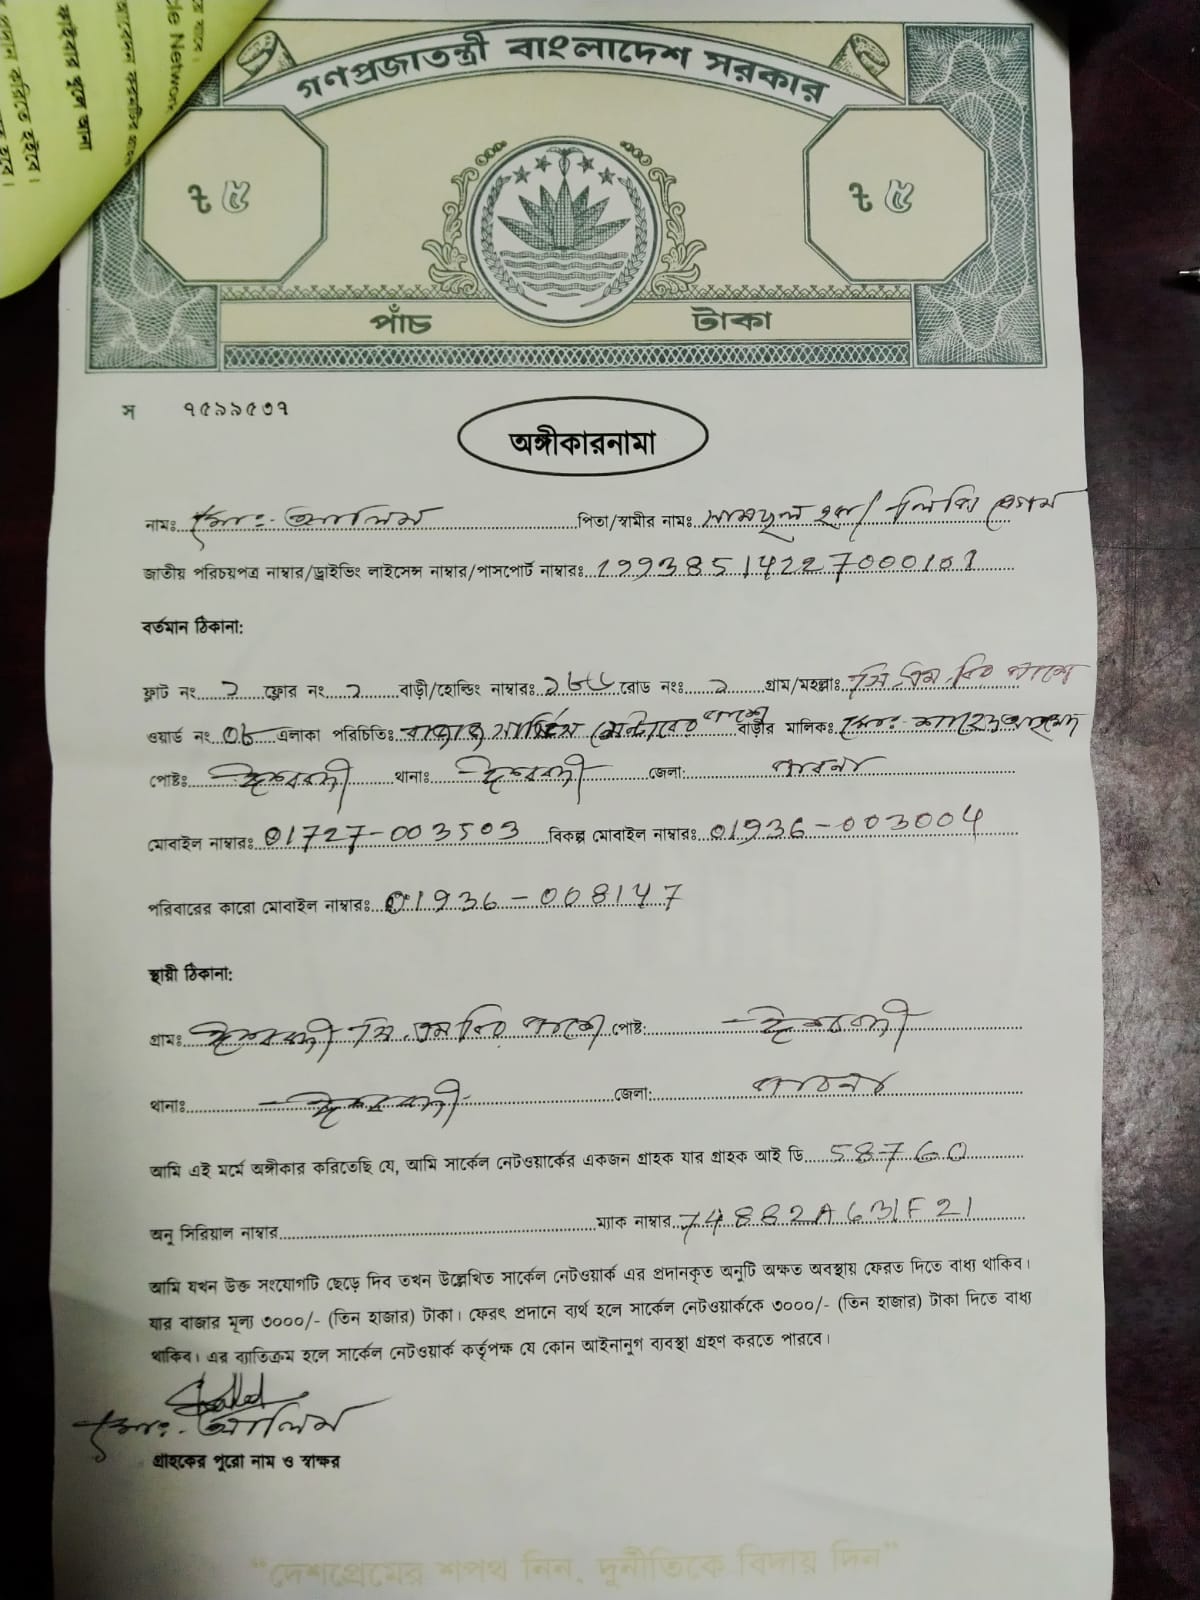 গণপ্রজাতন্ত্রী বাংলাদেশ সরকার
৳ ৫ ৳ ৫
পাঁচ টাকা
স ৭৫৯৯৫৩৭
অঙ্গীকারনামা
নামঃ মোঃ- আলিম পিতা/স্বামীর নামঃ সামছুল হক/ লিপি বেগম
জাতীয় পরিচয়পত্র নাম্বার/ড্রাইভিং লাইসেন্স নাম্বার/পাসপোর্ট নাম্বারঃ 19938514227000101
বর্তমান ঠিকানা:
ফ্লাট নং ১ ফ্লোর নং ১ বাড়ী/হোল্ডিং নাম্বারঃ রোড নংঃ ১ গ্রাম/মহল্লাঃ সি.এম.বির পাশে
ওয়ার্ড নং ০৮ এলাকা পরিচিতিঃ সার্ভিস সেন্টারের পাশে বাড়ীর মালিকঃ মোঃ-
পোষ্টঃ ঈশ্বরদী থানাঃ ঈশ্বরদী জেলা: পাবনা
মোবাইল নাম্বারঃ 01727-003503 বিকল্প মোবাইল নাম্বারঃ 01936-003004
পরিবারের কারো মোবাইল নাম্বারঃ 01936-008147
স্থায়ী ঠিকানা:
গ্রামঃ ঈশ্বরদী সি.এম বির পাশে পোষ্ট: ঈশ্বরদী
থানাঃ ঈশ্বরদী জেলা: পাবনা
আমি এই মর্মে অঙ্গীকার করিতেছি যে, আমি সার্কেল নেটওয়ার্কের একজন গ্রাহক যার গ্রাহক আই ডি 58760
অনু সিরিয়াল নাম্বার ম্যাক নাম্বার 74882A631F21
আমি যখন উক্ত সংযোগটি ছেড়ে দিব তখন উল্লেখিত সার্কেল নেটওয়ার্ক এর প্রদানকৃত অনুটি অক্ষত অবস্থায় ফেরত দিতে বাধ্য থাকিব।
যার বাজার মূল্য ৩০০০/- (তিন হাজার) টাকা। ফেরৎ প্রদানে ব্যর্থ হলে সার্কেল নেটওয়ার্ককে ৩০০০/- (তিন হাজার) টাকা দিতে বাধ্য
থাকিব। এর ব্যতিক্রম হলে সার্কেল নেটওয়ার্ক কর্তৃপক্ষ যে কোন আইনানুগ ব্যবস্থা গ্রহণ করতে পারবে।
মোঃ- আলিম
গ্রাহকের পুরো নাম ও স্বাক্ষর
"দেশপ্রেমের শপথ নিন, দুর্নীতিকে বিদায় দিন"